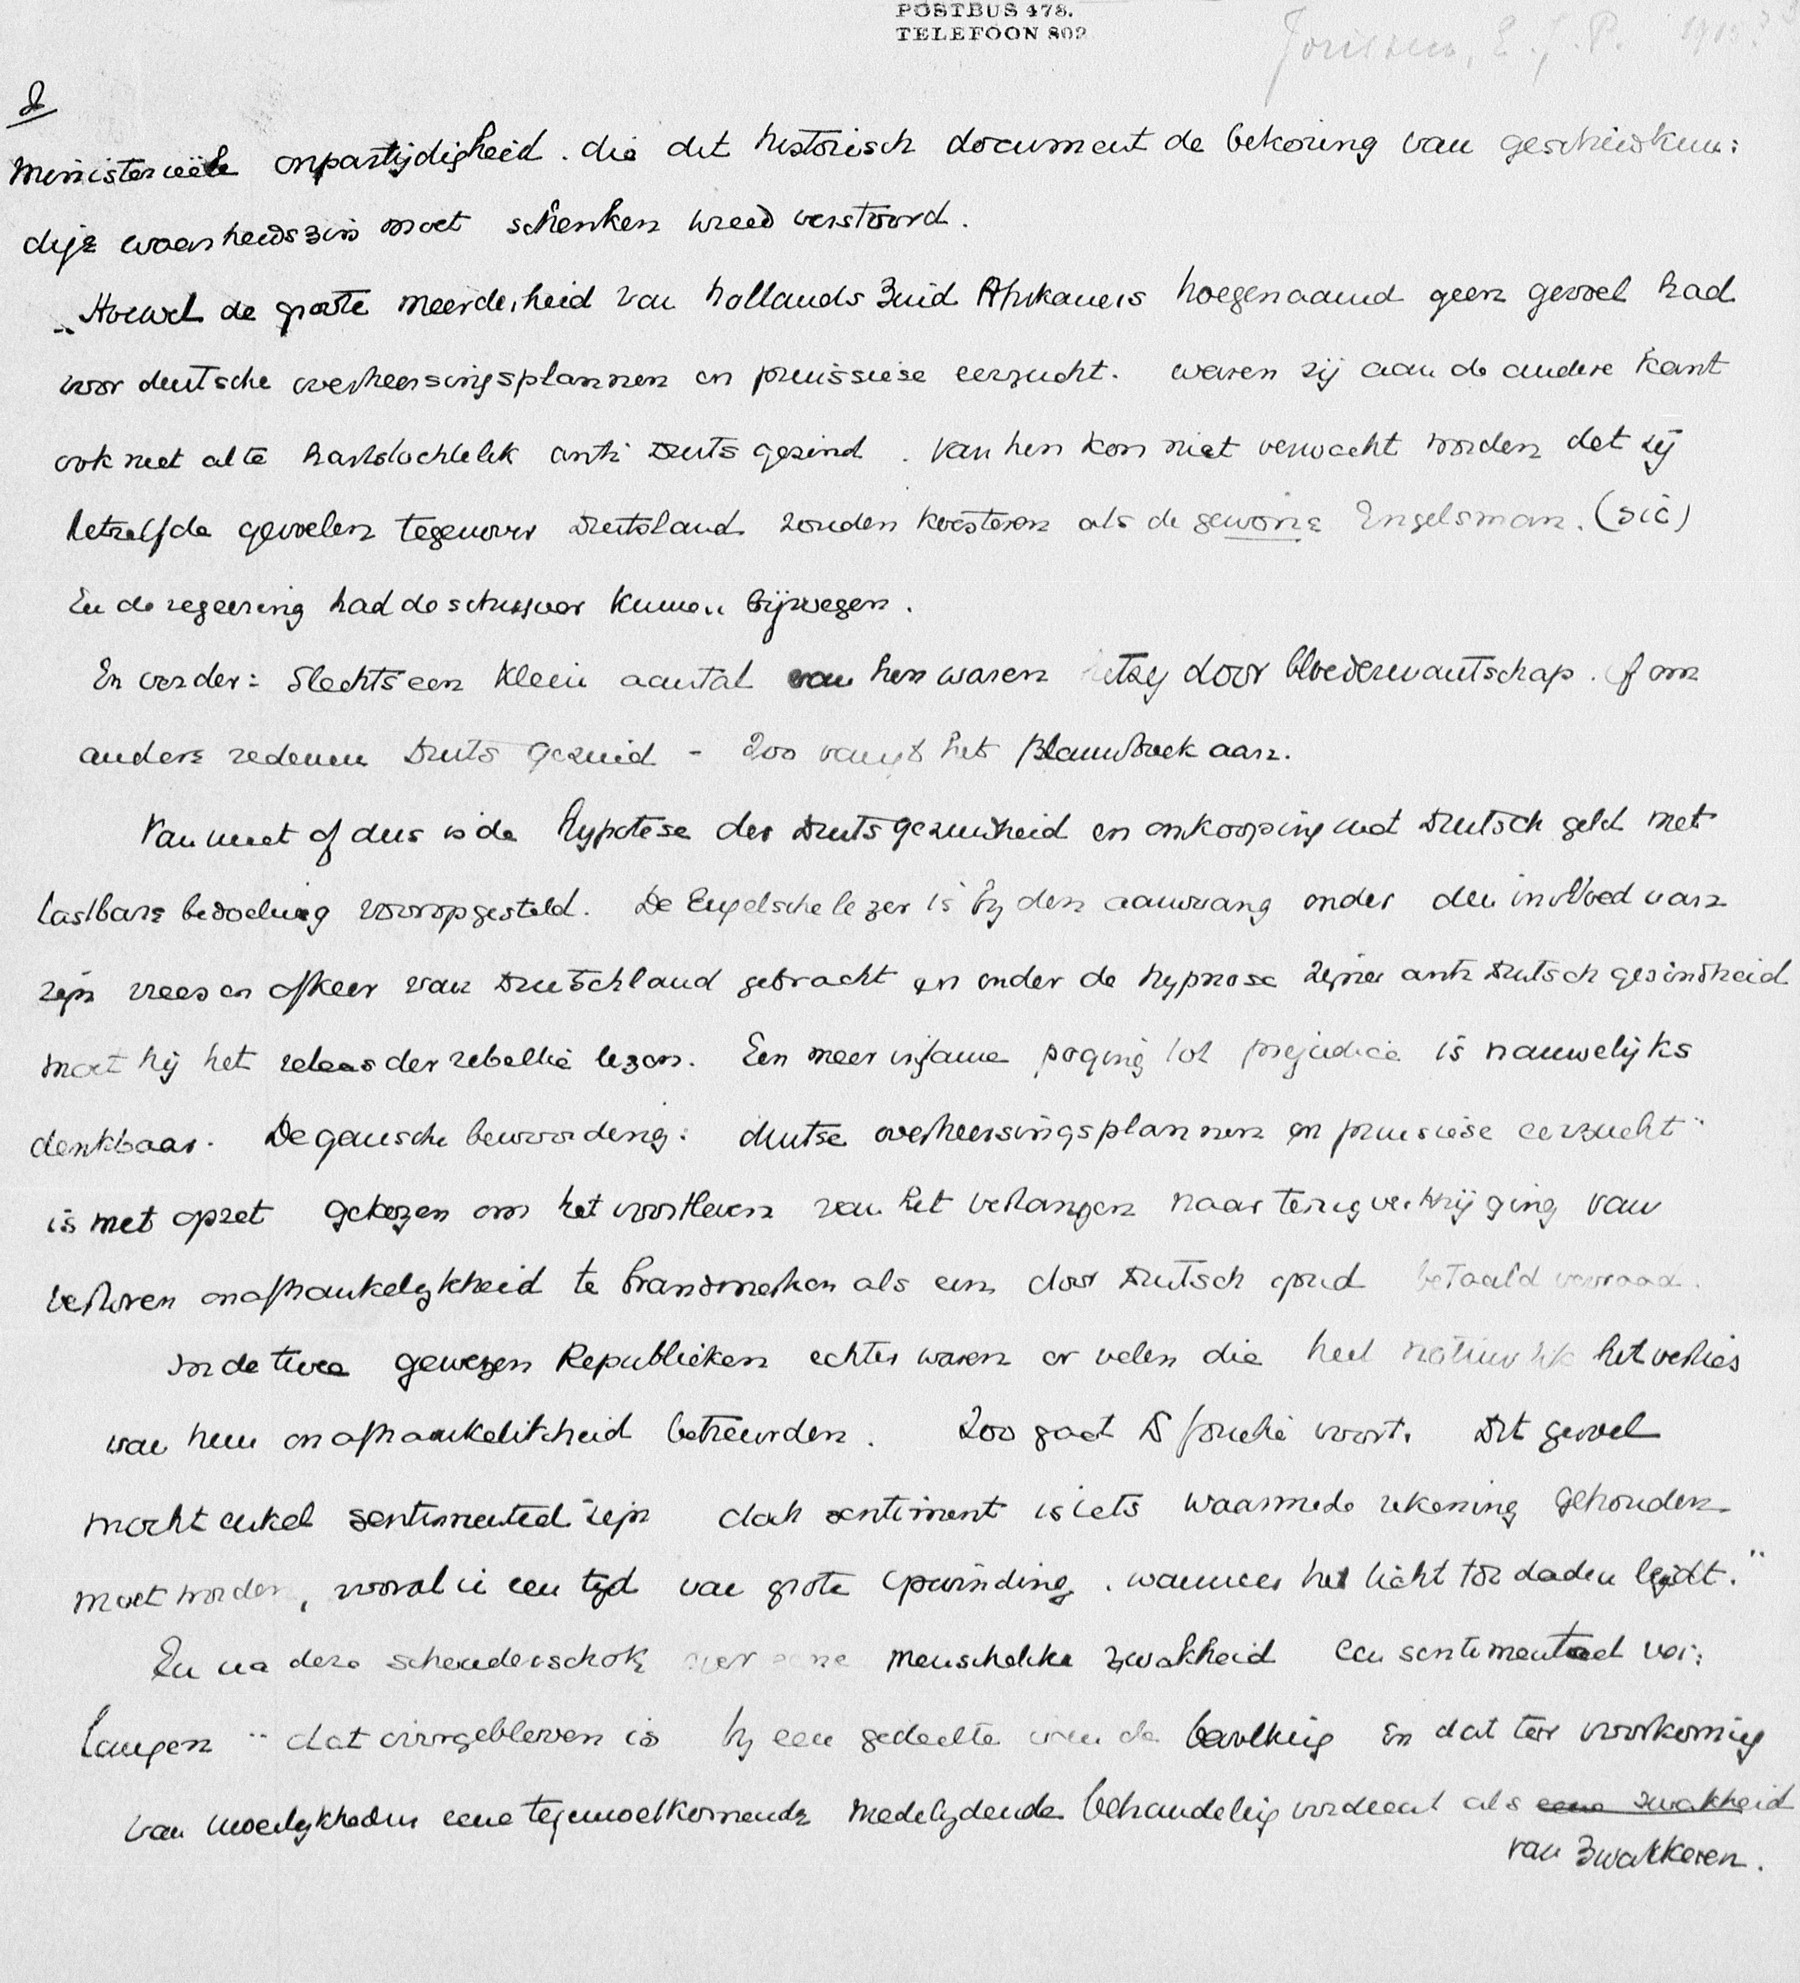 POSTBUS 478.
TELEFOON 802
Jorissen, E. J. P. 1915?
2
ministerieële onpartijdigheid. die dit historisch document de bekoring van geschiedkun:
dige waarheidszin moet schenken wreed verstoord.
"Hoewel de groote meerderheid van hollands Zuid Afrikaners hoegenaamd geen gevoel had
voor deutsche overheersingsplannen en pruissiese eerzucht. waren zij aan de andere kant
ook niet al te hartstochtelik anti Duits gezind. Van hen kon niet verwacht worden dat zij
hetzelfde gevoelen tegenover Duitsland zouden koesteren als de gewone Engelsman. (sic)
En de regeering had de schrijver kunnen bijvoegen.
En verder: Slechts een klein aantal van hen waren hetzy door bloedverwantschap. of om
andere redenen Duits gezind - Zoo vangt het Blauwboek aan.
Van meet af dus is de hypotese der Duitsgezindheid en omkooping met Duitsch geld met
lastbare bedoeling vooropgesteld. De Engelsche lezer is by den aanvang onder den invloed van
zijn vrees en afkeer van Duitschland gebracht en onder de hypnose zijner anti Duitsch gezindheid
moet hij het relaas der rebellie lezen. Een meer infame poging tot prejudicie is nauwelijks
denkbaar. De gansche bewoording: duitse overheersingsplannen en pruisiese eerzucht"
is met opzet gekozen om het voortleven van het verlangen naar terugverkrijging van
verloren onafhankelykheid te brandmerken als een door Duitsch goud betaald verraad.
In de twee gewezen Republieken echter waren er velen die heel natuurlik het verlies
van hun onafhankelikheid betreurden. Zoo gaat Dr Fouché voort. Dit gevoel
mocht enkel sentimenteel zijn doch sentiment is iets waarmede rekening gehouden
moet worden, vooral in een tijd van grote opwinding. wanneer het licht tot daden leidt."
En na deze schouderschok over eene menschelike zwakheid een sentimenteel ver:
langen " dat overgebleven is by een gedeelte van de bevolking en dat ter voorkoming
van moeilykheden eene tegemoetkomende medelydende behandeling verdient als eene zwakheid
van zwakkeren.